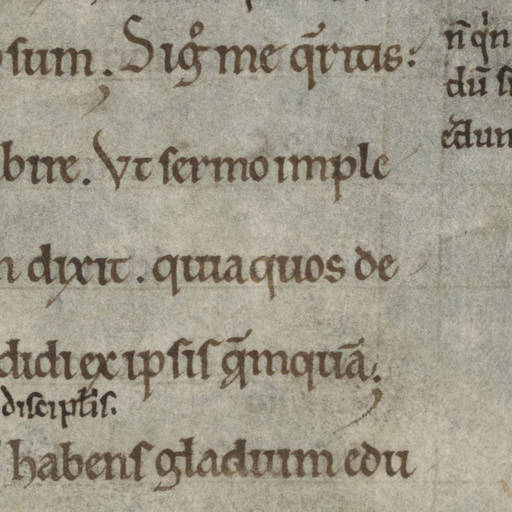 sum. Sig̊ me q̄ritis:
bire. Ut sermo imple
dixit. quia quos de
didi ex ipsis q̄mquā.
discipłis.
habens gladium edu
n̄ qͥn
dū